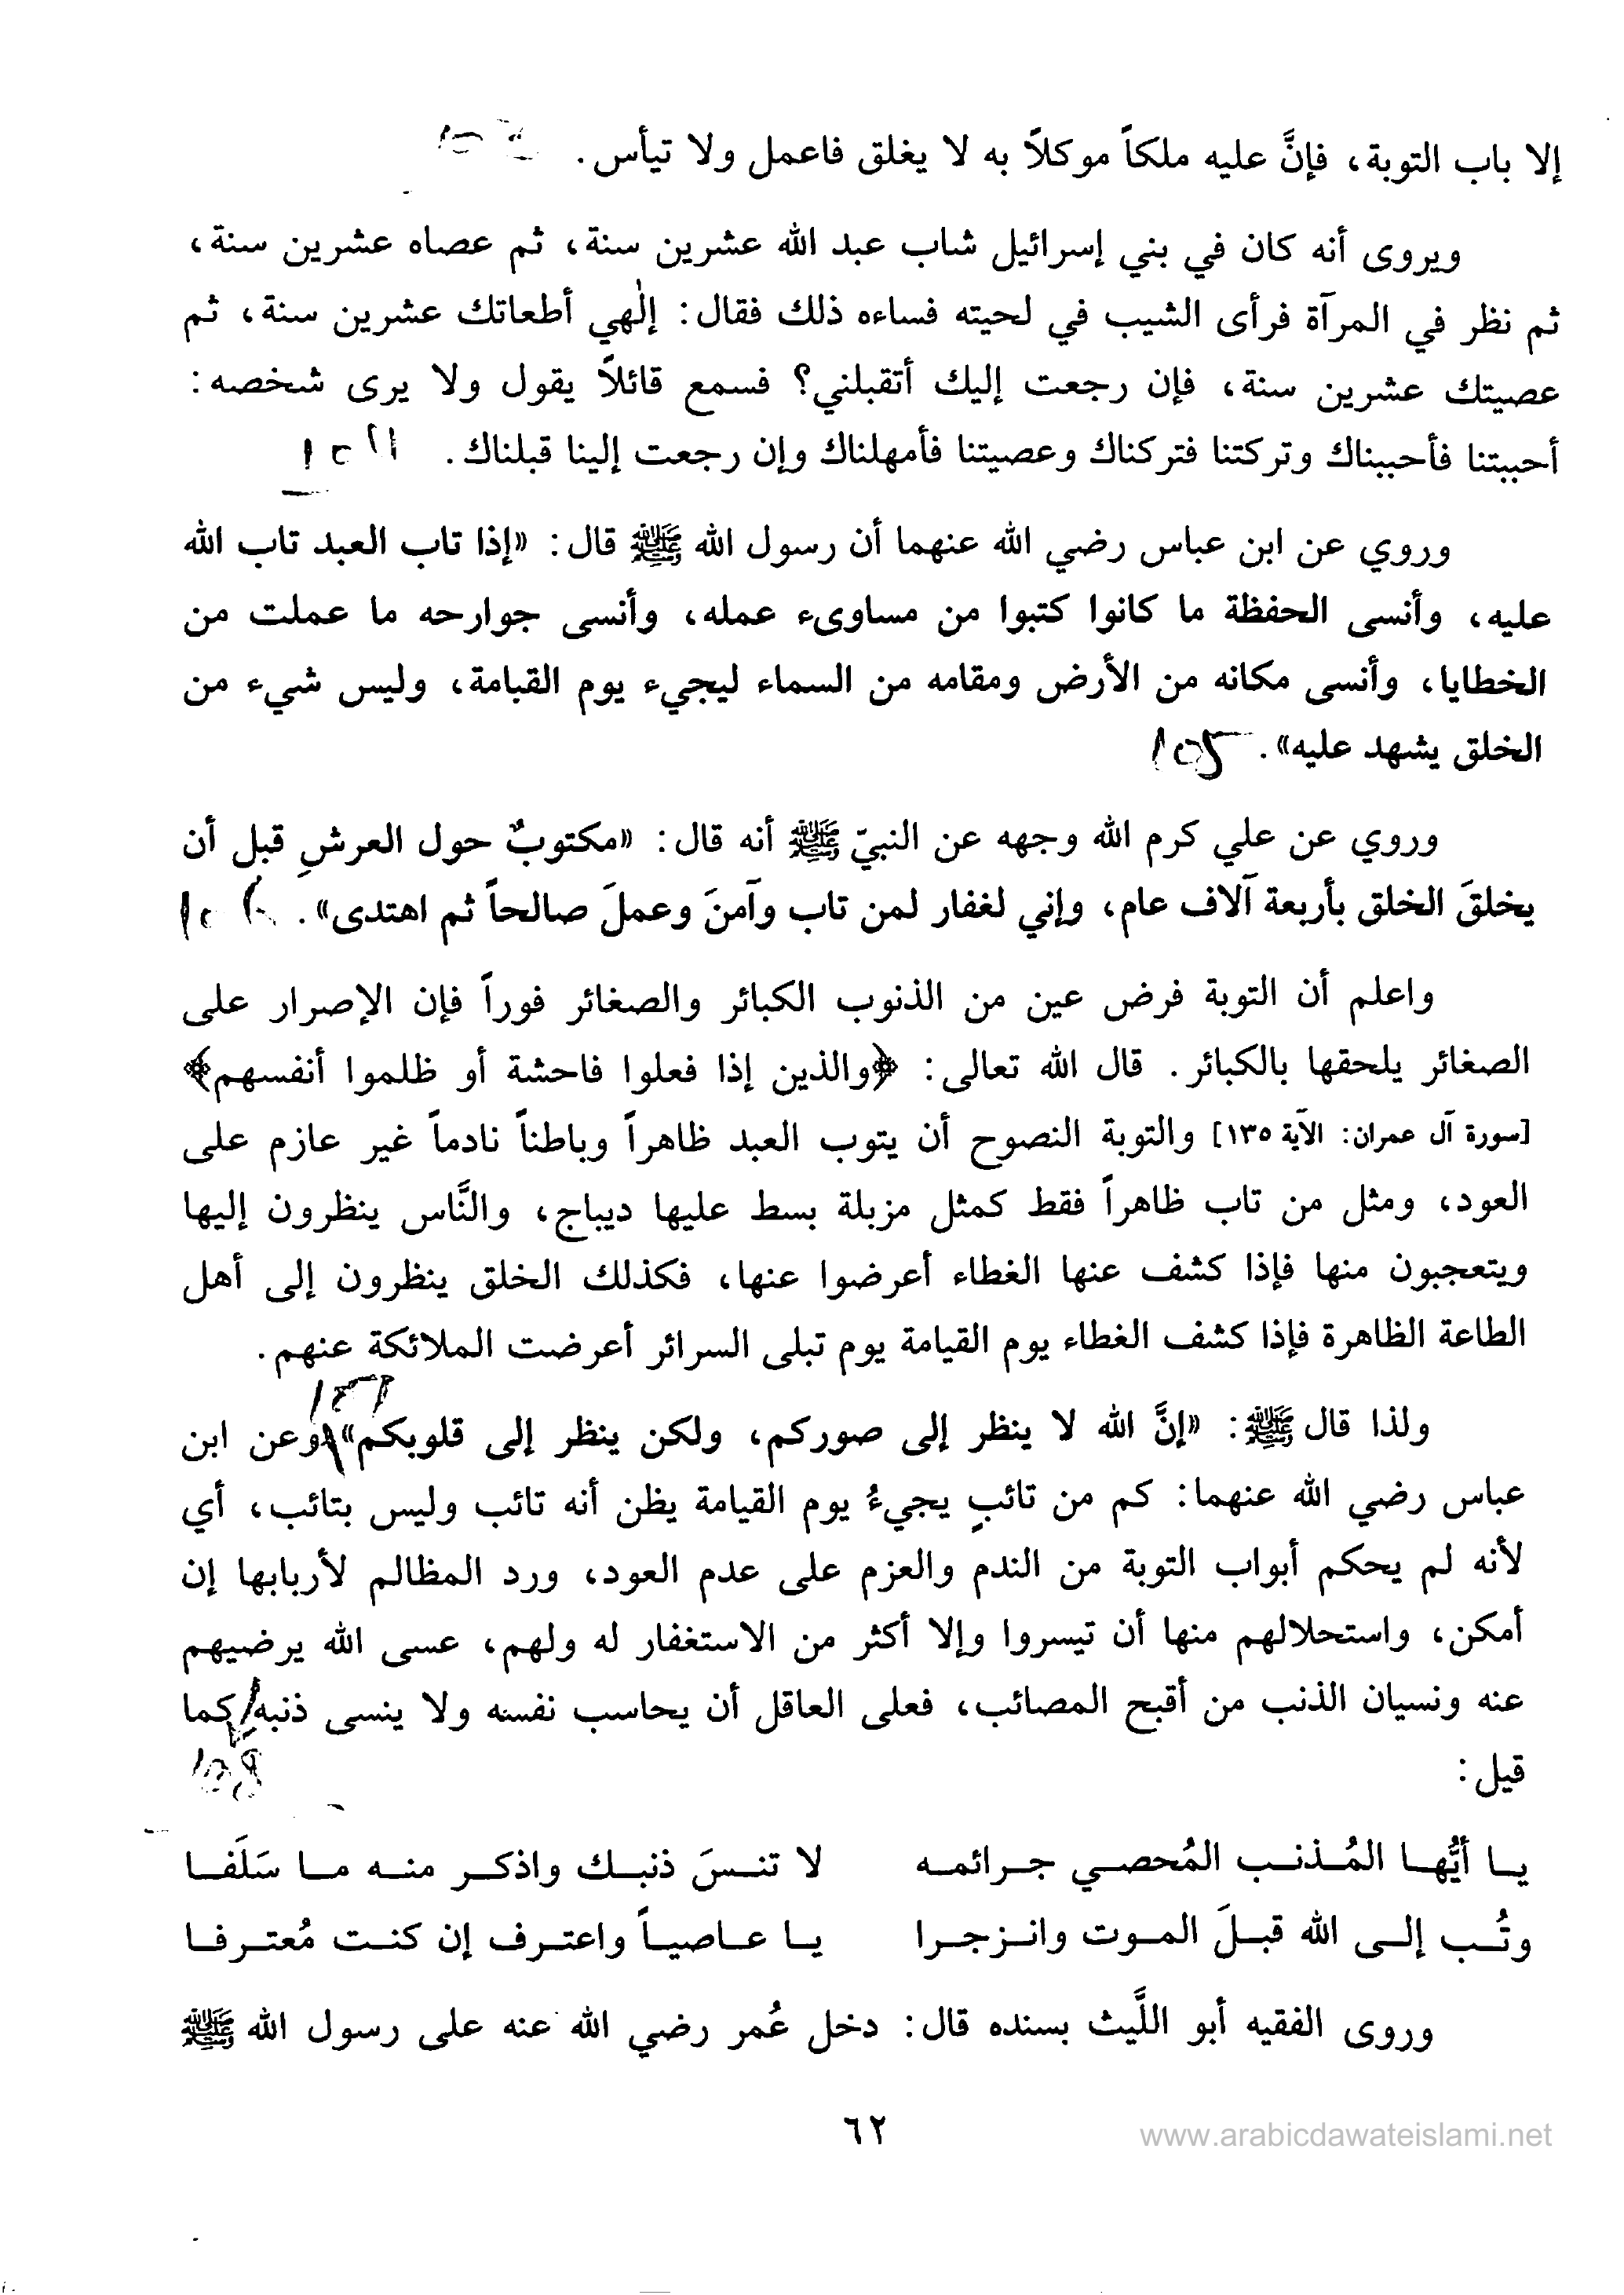 إلا باب التوبة، فإنَّ عليه ملكاً موكلاً به لا يغلق فاعمل ولا تيأس.
ويروى أنه كان في بني إسرائيل شاب عبد الله عشرين سنة، ثم عصاه عشرين سنة،
ثم نظر في المرآة فرأى الشيب في لحيته فساءه ذلك فقال: إلٰهي أطعاتك عشرين سنة، ثم
عصيتك عشرين سنة، فإن رجعت إليك أتقبلني؟ فسمع قائلاً يقول ولا يرى شخصه:
أحببتنا فأحببناك وتركتنا فتركناك وعصيتنا فأمهلناك وإن رجعت إلينا قبلناك.
وروي عن ابن عباس رضي الله عنهما أن رسول الله ﷺ قال: «إذا تاب العبد تاب الله
عليه، وأنسى الحفظة ما كانوا كتبوا من مساوىء عمله، وأنسى جوارحه ما عملت من
الخطايا، وأنسى مكانه من الأرض ومقامه من السماء ليجيء يوم القيامة، وليس شيء من
الخلق يشهد عليه».
وروي عن علي كرم الله وجهه عن النبيّ ﷺ أنه قال: «مكتوبٌ حول العرشِ قبل أن
يخلقَ الخلق بأربعة آلاف عام، وإني لغفار لمن تاب وآمنَ وعملَ صالحاً ثم اهتدى».
واعلم أن التوبة فرض عين من الذنوب الكبائر والصغائر فوراً فإن الإصرار على
الصغائر يلحقها بالكبائر. قال الله تعالى: ﴿والذين إذا فعلوا فاحشة أو ظلموا أنفسهم﴾
[سورة آل عمران: الآية ١٣٥] والتوبة النصوح أن يتوب العبد ظاهراً وباطناً نادماً غير عازم على
العود، ومثل من تاب ظاهراً فقط كمثل مزبلة بسط عليها ديباج، والنَّاس ينظرون إليها
ويتعجبون منها فإذا كشف عنها الغطاء أعرضوا عنها، فكذلك الخلق ينظرون إلى أهل
الطاعة الظاهرة فإذا كشف الغطاء يوم القيامة يوم تبلى السرائر أعرضت الملائكة عنهم.
ولذا قال ﷺ: «إنَّ الله لا ينظر إلى صوركم، ولكن ينظر إلى قلوبكم» وعن ابن
عباس رضي الله عنهما: كم من تائبٍ يجيءُ يوم القيامة يظن أنه تائب وليس بتائب، أي
لأنه لم يحكم أبواب التوبة من الندم والعزم على عدم العود، ورد المظالم لأربابها إن
أمكن، واستحلالهم منها أن تيسروا وإلا أكثر من الاستغفار له ولهم، عسى الله يرضيهم
عنه ونسيان الذنب من أقبح المصائب، فعلى العاقل أن يحاسب نفسه ولا ينسى ذنبه كما
قيل:
يا أيُّها المُذنب المُحصي جرائمه لا تنسَ ذنبك واذكر منه ما سَلَفا
وتُب إلى الله قبلَ الموت وانزجرا يا عاصياً واعترف إن كنت مُعترفا
وروى الفقيه أبو اللَّيث بسنده قال: دخل عُمر رضي الله عنه على رسول الله ﷺ
٦٢
www.arabicdawateislami.net